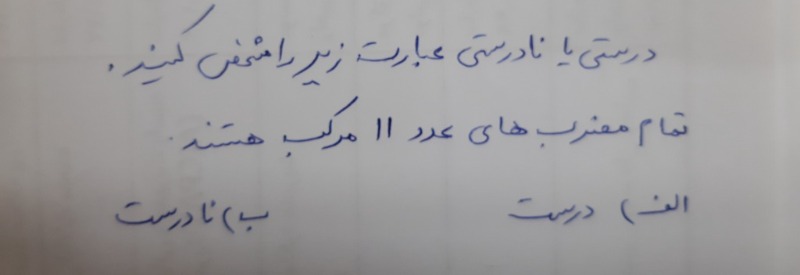 درستی یا نادرستی عبارت زیر را مشخص کنید.
تمام مضرب های عدد 11 مرکب هستند.
الف) درست ب) نادرست